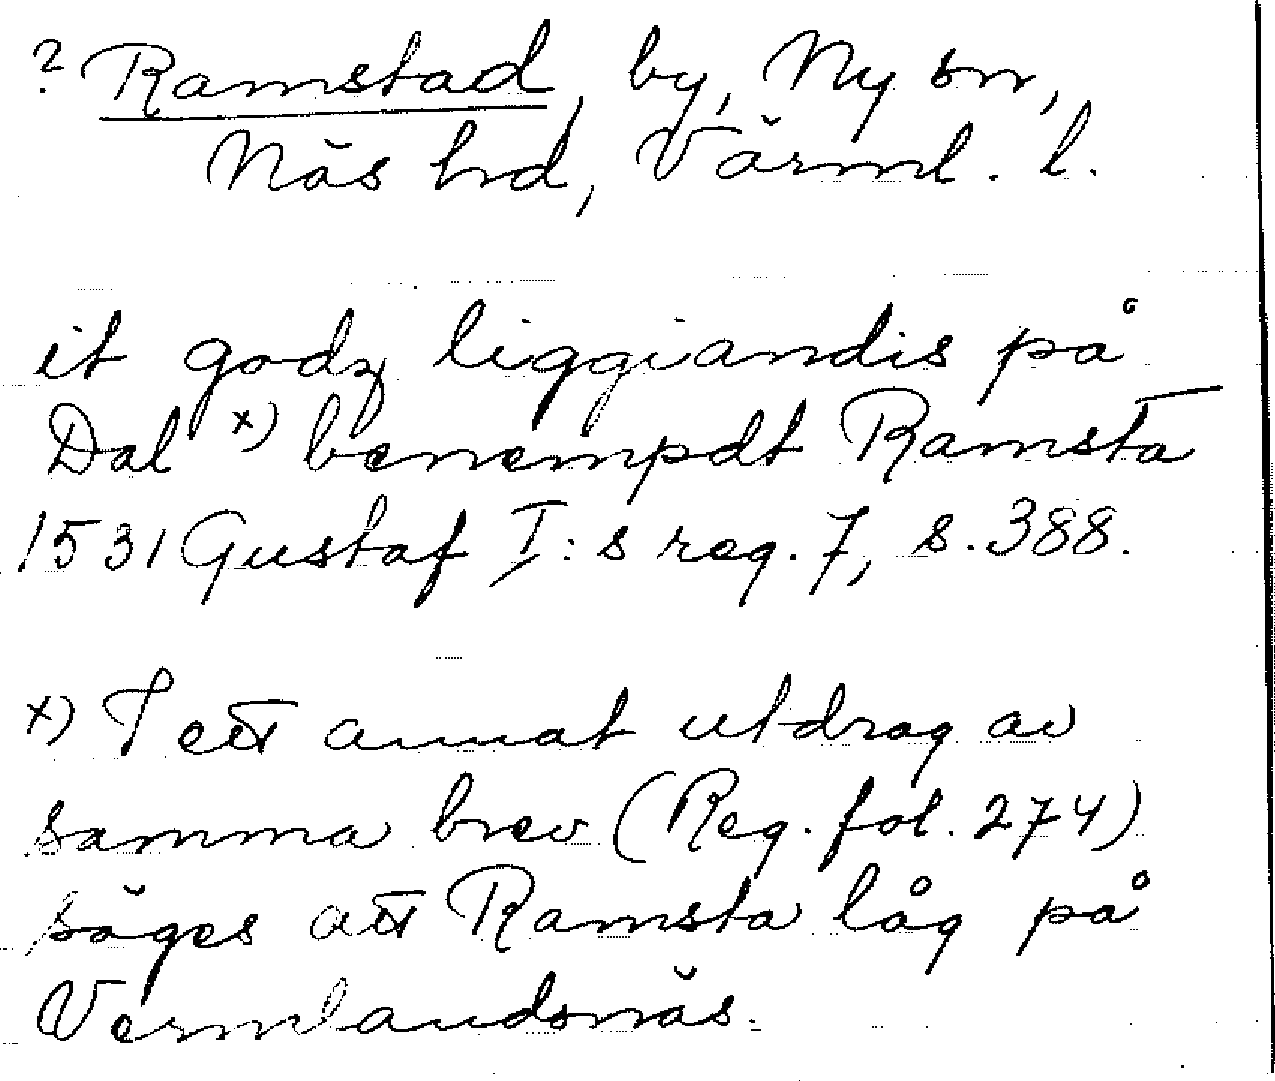 ? Ramstad, by, Ny sn,
Näs hd, Värml. l.
it godz liggiandis på
Dal x) benempdt Ramsta
1531 Gustaf I:s reg. 7, s. 388.
x) I ett annat utdrag av
samma brev (Reg. fol. 274)
säges att Ramsta låg på
Vermlandsnäs.